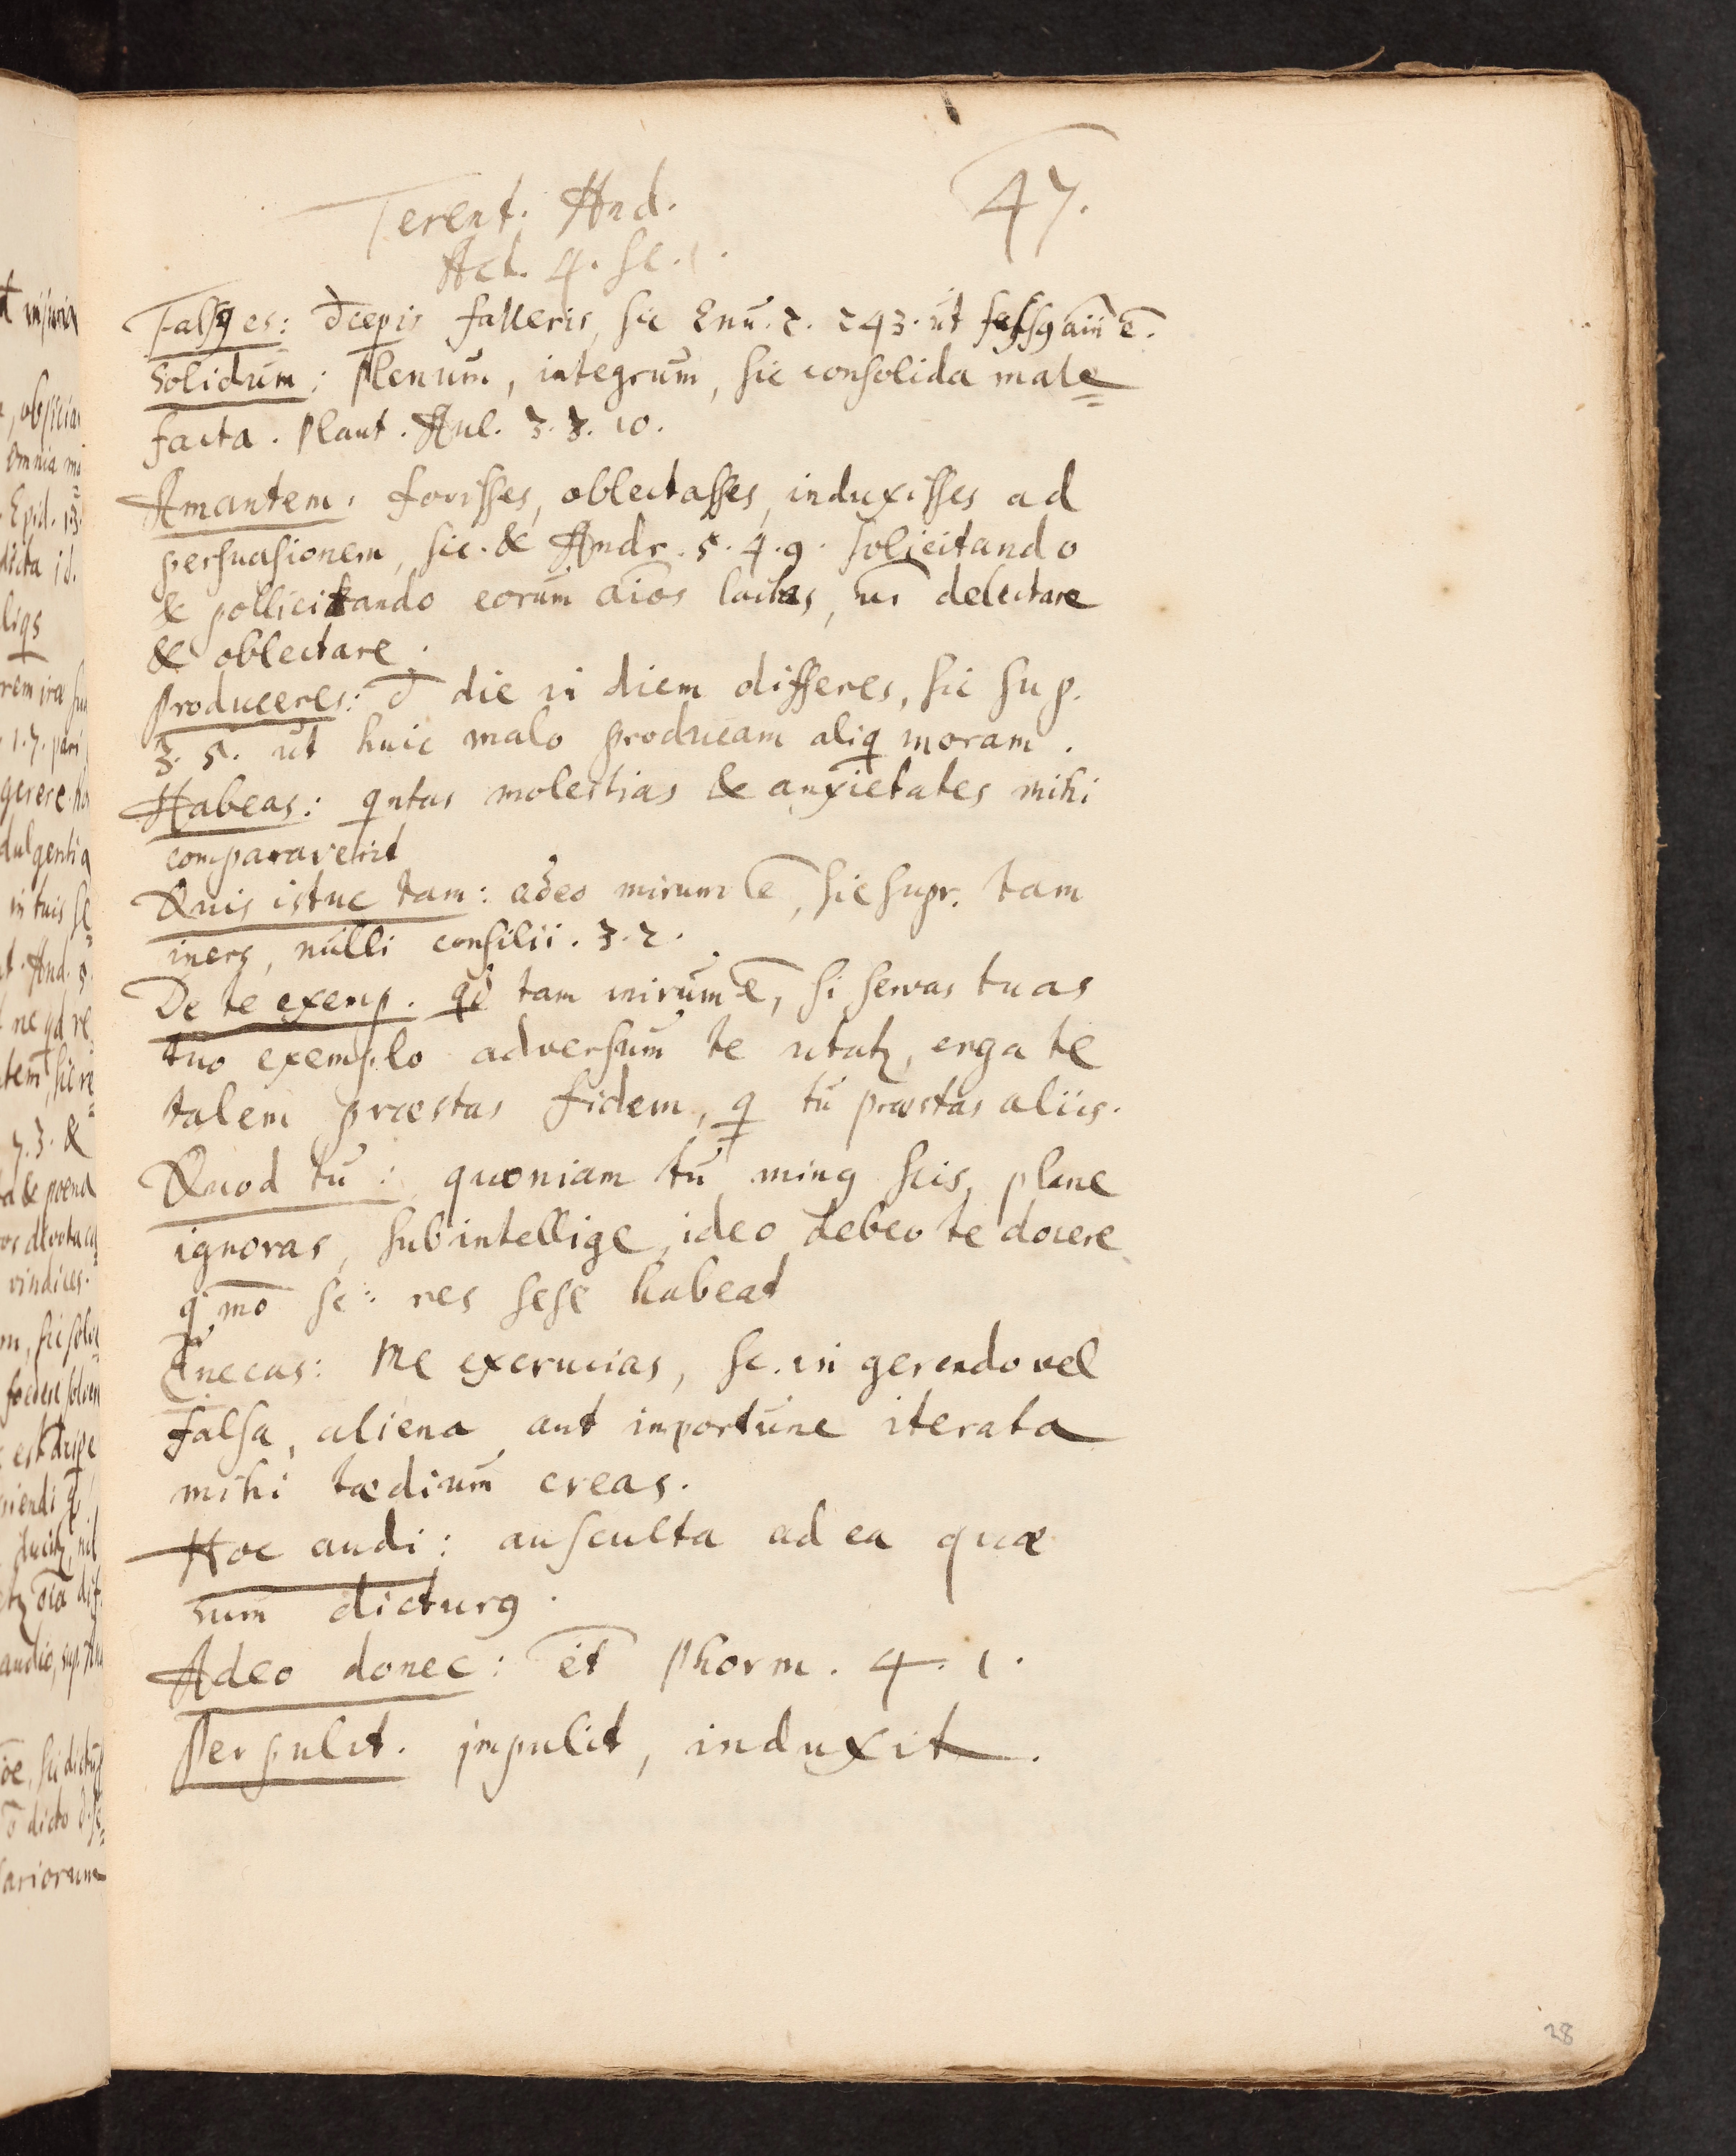 Terent. And. 47.
Act. 4. sc. 1.
Falsꝯ es: d̄cepis falleris, sic Enu. 2. 243. ut falsꝯ aiī ē.
Solidum: Plenum, integrum, sic consolida male
facta. Plaut. Aul. 3. 3. 10.
Amantem. fovisses, oblectasses, induxisses ad
persuasionem, sic. & Andr. 5. 4. 9. solicitando
& pollicitando eorum aīos lactas, delectare
& oblectare.
Produceres: d̄ die in diem differes, sic sup.
3. 5. ut huic malo producam aliq̄ moram.
Habeas: qntas molestias & anxietates mihi
comparaverit
Quis istuc tam: adeo mirum ē, sic supr. tam
iners, nulli consilii. 3. 2.
De te exemp. qd tam mirum ē, si servas tuas
tuo exemplo adversum te utatꝫ, erga te
talem præstas fidem, q̄ tu præstas aliis.
Quod tu: quoniam tu minꝯ scis, plane
ignoras, subintellige, ideo debeo te docere
qºmō sc: res sese habeat
Enecas: Me excrucias, sc. in gerendo vel
falsa, aliena aut inportune iterata
mihi tædium creas.
Hoc audi: ausculta ad ea quæ
sum dicturꝯ.
Adeo donec: et Phorm. 4. 1.
Perpulit. impulit, induxit.
28